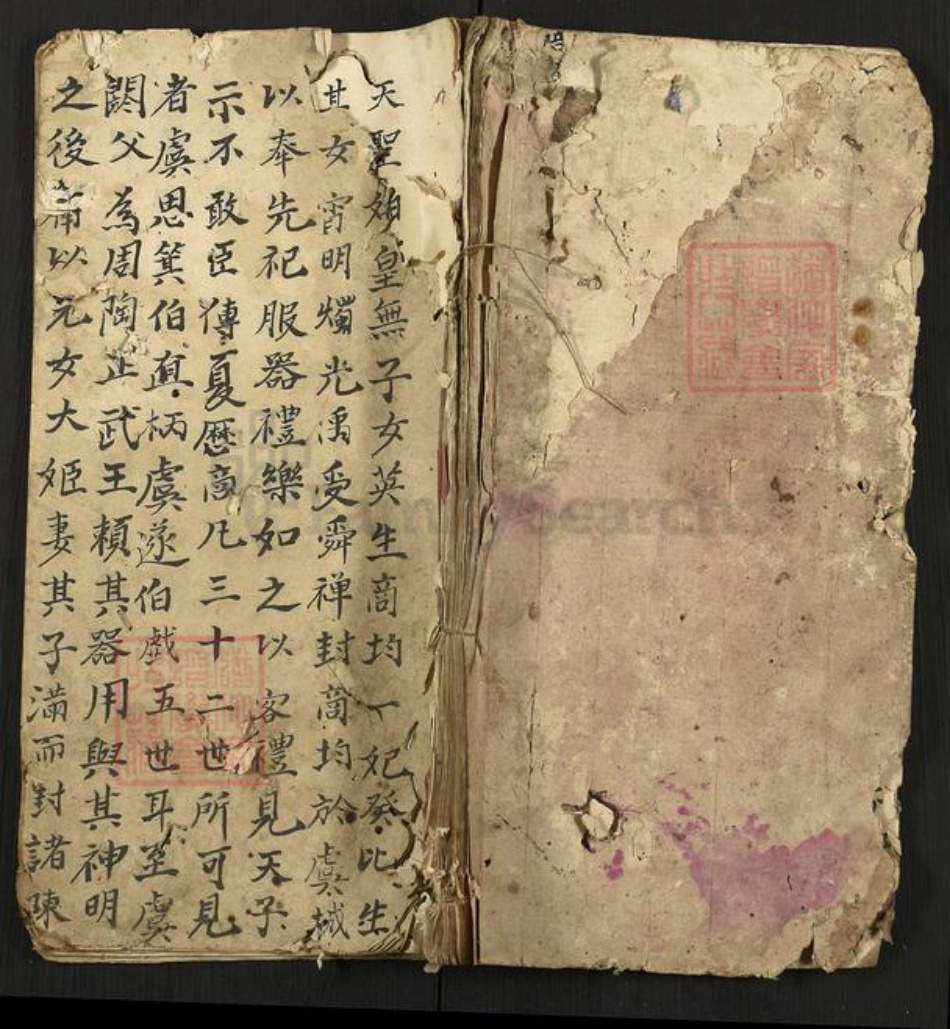 天聖娥皇無子女英生商均一妃癸比生
其女宵明燭光禹受舜禪封商均於虞城
以奉先祀服器禮樂如之以客禮見天子
示不敢臣傳夏歷商凡三十二世所可見
者虞思箕伯直柄虞遂伯戲五世耳至虞
閼父為周陶正武王賴其器用與其神明
之後甫以元女大姬妻其子滿而封諸陳